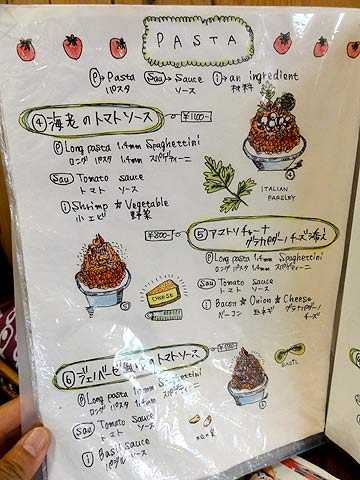 PASTA
P → Pasta Sau → Sauce i → an ingredient
パスタ ソース 材料
④海老のトマトソース ¥1100-
P Long pasta 1.4mm Spaghettini
ロング パスタ 1.4mm スパゲティーニ
Sau Tomato sauce
トマト ソース
i Shrimp ★ Vegetable
小エビ 野菜
4
ITALIAN
PARSLEY
¥800-
⑤アマトリチャーナ
グラナパダーノチーズ添え
P Long pasta 1.4mm Spaghettini
ロング パスタ 1.4mm スパゲティーニ
Sau Tomato Sauce
トマト ソース
i Bacon ★ Onion ★ Cheese
ベーコン 玉ネギ グラナパダーノ
チーズ
5
CHEESE
⑥ジェノバ のトマトソース
P Long pasta Spaghettini
ロング パスタ スパゲティーニ
Sau Tomato Sauce
トマト ソース
i Basil sauce
バジル ソース
6
BASIL